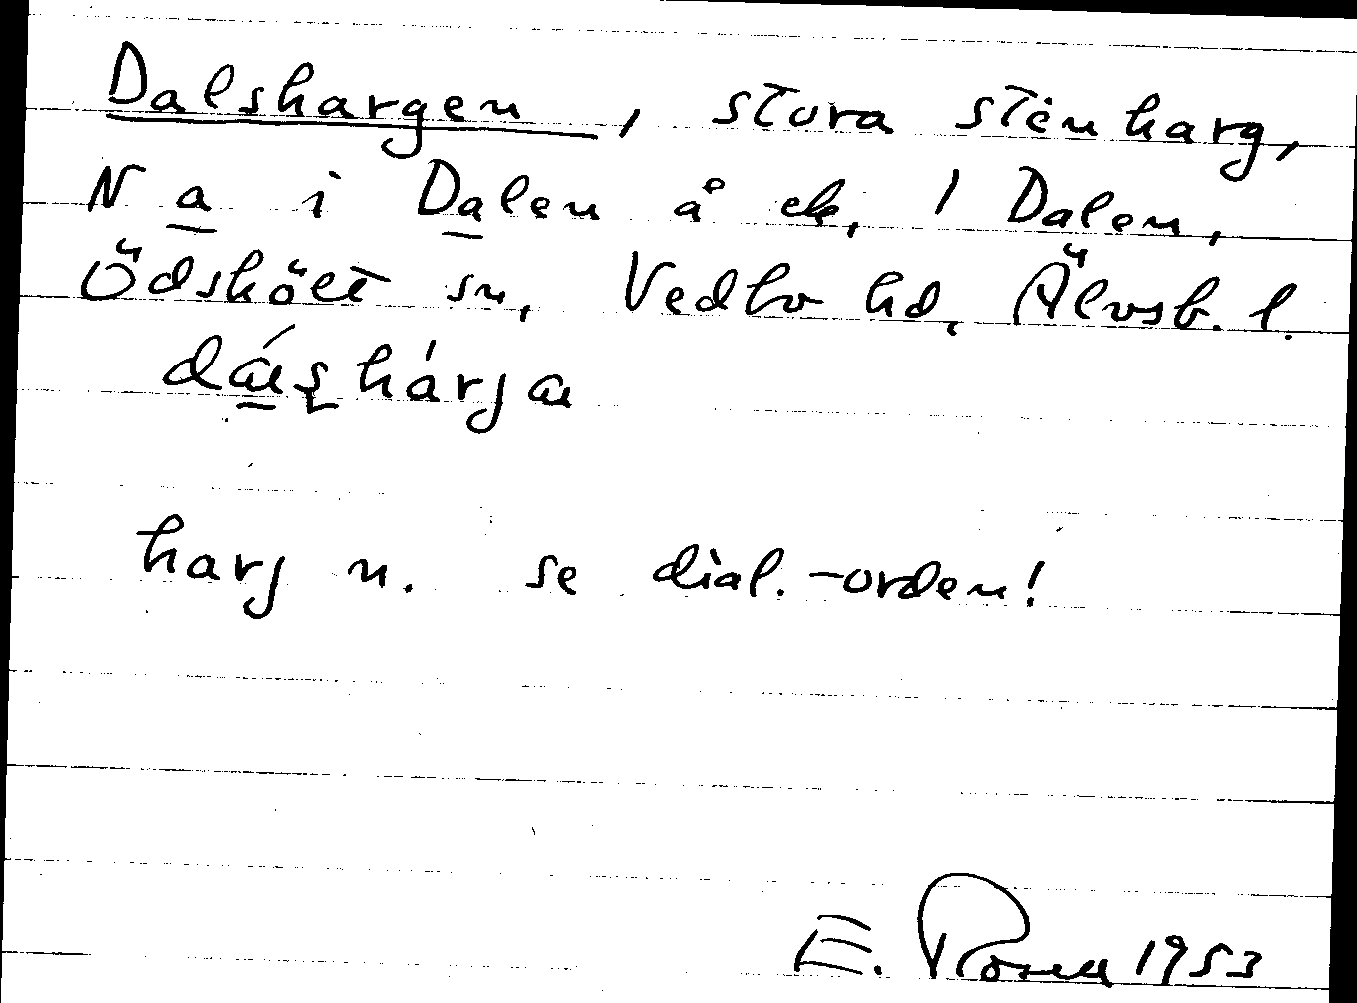 Dalshargen, stora stenharg,
N a i Dalen å ek, 1 Dalen,
Ödskölt sn, Vedbo hd, Älvsb. l.
harj n. se dial.-orden!
E. Rosell 1953